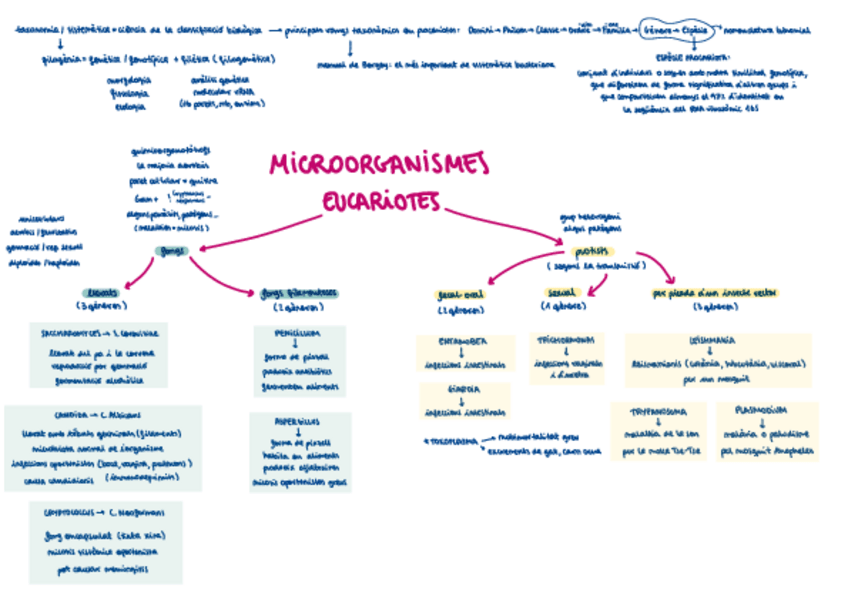 taxonomia / sistemàtica = ciència de la classificació biològica → principals rangs taxonòmics en procariotes: Domini → Phílum → Classe → Ordre → Família → Gènere → Espècie → nomenclatura binomial
filogènia = genètica / genotípica + fílètica (filogenètica)
manual de Bergey: el més important de sistemàtica bacteriana
ESPÈCIE PROCARIOTA:
morfologia
fisiologia
ecologia
anàlisi genètica
molecular
conjunt d'individus o soques amb molta similitud genotípica,
que difereixen de forma significativa d'altres grups i
que comparteixen almenys el 97% d'identitat en
la seqüència del RNA ribosòmic 16S
MICROORGANISMES
EUCARIOTES
la majoria aerobis
paret cel·lular = quitina
Gram +
alguns paràsits, patògens...
(malalties = micosis)
fongs
unicel·lulars
gemmació / rep sexual
diploides / haploides
grup heterogeni
alguns patògens
protists
(segons la transmissió)
llevats
(3 gèneres)
fongs filamentosos
(2 gèneres)
fecal-oral
(2 gèneres)
sexual
(1 gènere)
per picada d'un insecte vector
(3 gèneres)
SACCHAROMYCES → S. Cerevisiae
llevat del pa i la cervesa
reproducció per gemmació
fermentació alcohòlica
CANDIDA → C. Albicans
llevat amb túbuls germinals (filaments)
microbiota normal de l'organisme
infeccions oportunistes (boca, vagina, pulmons)
causa candidiasis (immunodeprimits)
CRYPTOCOCCUS → C. Neoformans
fong encapsulat (tinta xina)
micosis sistèmica oportunista
pot causar meningitis
PENICILLIUM
forma de pinzell
produeix antibiòtics
fermenten aliments
ASPERGILLUS
forma de pinzell
habita en aliments
produeix aflatoxines
micosis oportunistes greus
ENTAMOEBA
infeccions intestinals
GIARDIA
infeccions intestinals
* TOXOPLASMA
excrements de gat, carn crua
TRICHOMONAS
infeccions vaginals
i d'uretra
LEISHMANIA
leishmaniosis (cutània, mucocutània, visceral)
per un mosquit
TRYPANOSOMA
malaltia de la son
per la mosca Tse-Tse
PLASMODIUM
malària o paludisme
pel mosquit Anopheles